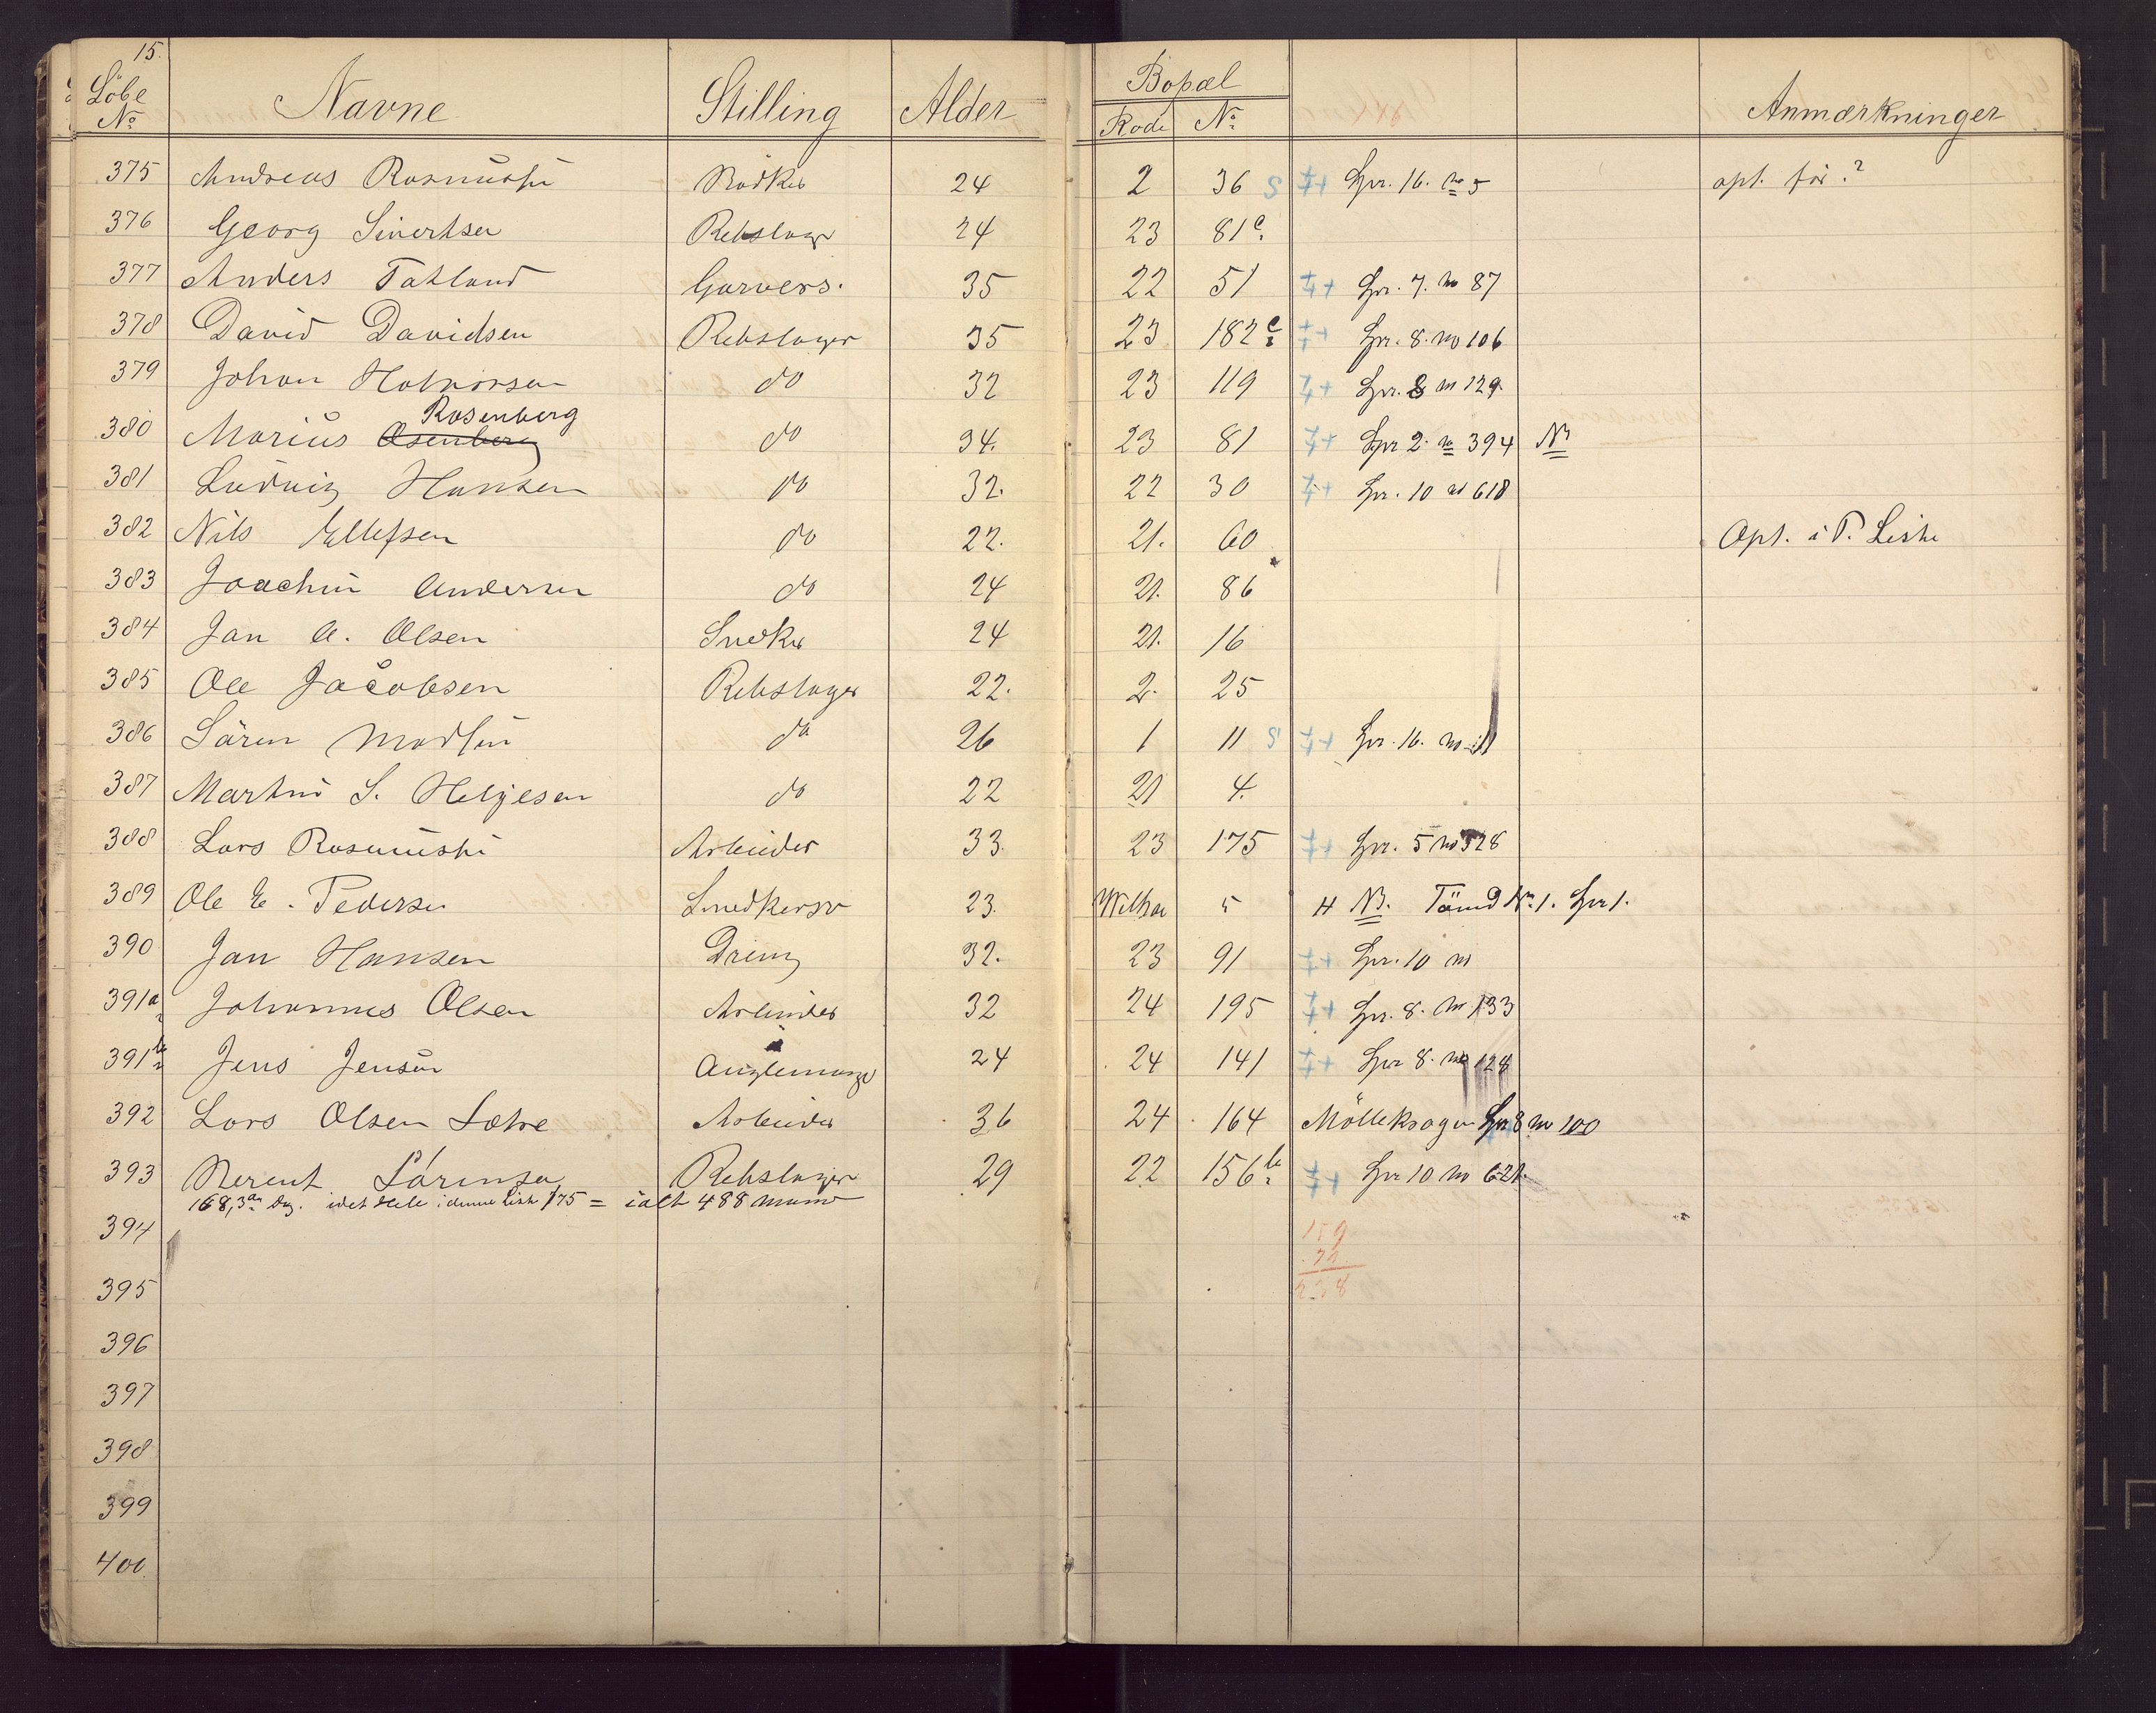 15.
Löbe No Navne Stilling Alder Bopæl Rode No. Anmærkninger
375 Andreas Rasmusen Bödker 24 2 36 S Spr. 16. no 5 opt. før.?
376 Georg Sivertsen Rebslager 24 23 81c.
377 Anders Tatland Garvers. 35 22 51 Spr. 7. no 87
378 David Davidsen Rebslager 35 23 182c. Spr. 8. no 106
379 Johan Halvorsen do 32 23 119 Spr. 8 no 129.
380 Marius Osenberg Rosenberg do 34. 23 81 Spr 2. no 394
381 Ludvig Hansen do 32. 22 30 Spr. 10 no 618
382 Nils Ellefsen do 22. 21. 60 Opt. i P. Liste
383 Joachim Andersen do 24 21. 86
384 Jan A. Olsen Snedker 24 21. 16
385 Ole Jacobsen Rebslager 22. 2. 25
386 Sören Madsen do 26 1 11 S Spr. 16. no
387 Martin S. Helgesen do 22 21 4.
388 Lars Rasmusen Arbeider 33. 23 175 Spr. 5 no 328
389 Ole E. Pedersen Snedkersv 23. 5 NB. No. 1. Spr 1.
390 Jan Hansen Dreng 32. 23 91 Spr. 10 no
391a Johannes Olsen Arbeider 32 24 195 Spr. 8. no 133
391b Jens Jensen 24 24 141 Spr 8. no 128
392 Lars Olsen Lothe Arbeider 36 24 164 Möllekrogen Spr 8 no 100
393 Berent Sörensen Rebslager 29 22 156b. Spr 10 no 621.
168, 3die Dag. idet Hele i denne Liste 175 = ialt 488 mand
394
159
238
395
396
397
398
399
400.